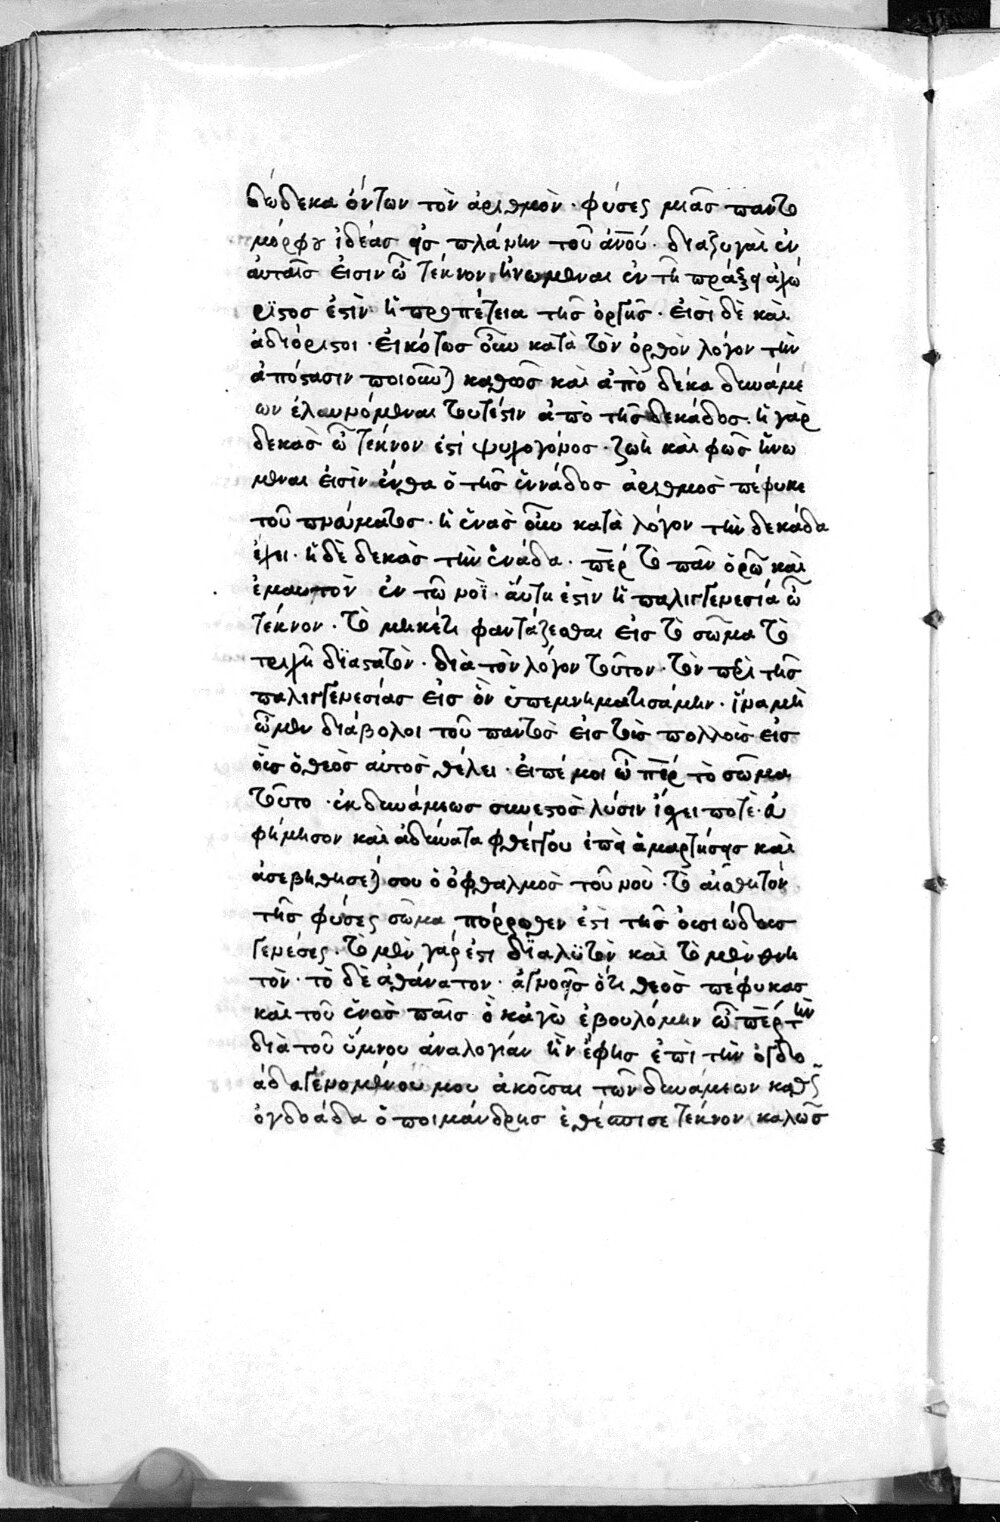 δώδεκα ὄντων τὸν ἀριθμὸν · φύσεως μιᾶς παντο
μόρφου ἰδέας εἰς πλάνην τοῦ ἀνου · διαζυγαὶ ἐν
αὐταῖς εἰσιν ὦ τέκνον ἡνωμέναι ἐν τῆ πράξει ἀχώ
ριστος ἐστὶν ἡ προπέτεια τῆς ὀργῆς · εἰσὶ δὲ καὶ
ἀδιόριστοι · εἰκότως οὖν κατὰ τὸν ὀρθὸν λόγον τὴν
ἀπόστασιν ποιοῦνται καθὼς καὶ ἀπὸ δέκα δυνάμε
ων ἐλαυνόμεναι τουτέστιν ἀπὸ τῆς δεκάδος · ἡ γὰρ
δεκὰς ὦ τέκνον ἐστὶ ψυχογόνος · ζωὴ καὶ φῶς ἡνω
μέναι εἰσὶν ἔνθα ὁ τῆς ἑνάδος ἀριθμὸς πέφυκε
τοῦ πνεύματος · ἡ ἑνὰς οὖν κατὰ λόγον τὴν δεκάδα
ἔχει · ἡ δὲ δεκὰς τὴν ἑνάδα · περ τὸ πᾶν ὁρῶ καὶ
ἐμαυτὸν ἐν τῶ νοῒ · αὕτη ἐστὶν ἡ παλιγγενεσία ὦ
τέκνον · τὸ μηκέτι φαντάζεσθαι εἰς τὸ σῶμα τὸ
τριχῆ διαστατὸν · διὰ τὸν λόγον τοῦτον · τὸν περὶ τῆς
παλιγγενεσίας εἰς ὃν ὑπεμνηματισάμην · ἵνα μὴ
ὦμεν διάβολοι τοῦ παντὸς εἰς τοὺς πολλοὺς εἰς
οὓς ὁ θεὸς αὐτὸς θέλει · εἰπέ μοι ὦ περ τὸ σῶμα
τοῦτο · ἐκ δυνάμεως συνεστὸς λύσιν ἴσχει ποτὲ · εὐ
φήμησον καὶ ἀδύνατα φθέγγου ἐπεὶ ἁμαρτήσεις καὶ
ἀσεβηθήσεταί σου ὁ ὀφθαλμὸς τοῦ νοῦ · τὸ αἰσθητὸν
τῆς φύσεως σῶμα πόρρωθεν ἐστὶ τῆς οὐσιώδους
γενέσεως · τὸ μὲν γάρ ἐστι διαλϋτὸν καὶ τὸ μὲν θνη
τὸν · τὸ δὲ ἀθάνατον · ἀγνοεῖς ὅτι θεὸς πέφυκας
καὶ τοῦ ἑνὸς παῖς ὃ κἀγὼ ἐβουλόμην ὦ περ τὴν
διὰ τοῦ ὕμνου ἀναλογίαν ἣν ἔφης ἐπὶ τὴν ὀγδο
άδα γενομένου μου ἀκοῦσαι τῶν δυνάμεων καθὼς
ὀγδοάδα ὁ ποιμάνδρης ἐθέσπισε τέκνον καλῶς